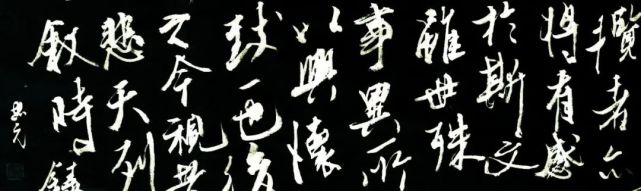 攬者亦
將有感
於斯文
雖世殊
事異所
以興懷
致一也後
之今視
悲夫列
叙時錄